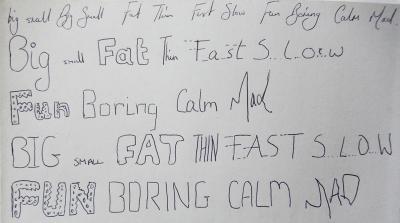 big small Big Small Fat Thin Fast Slow Fun Boring Calm Mad
Big small Fat Thin Fast S..L..o..w
Fun Boring Calm Mad
BIG SMALL FAT THIN FAST S..L..O..W
FUN BORING CALM MAD